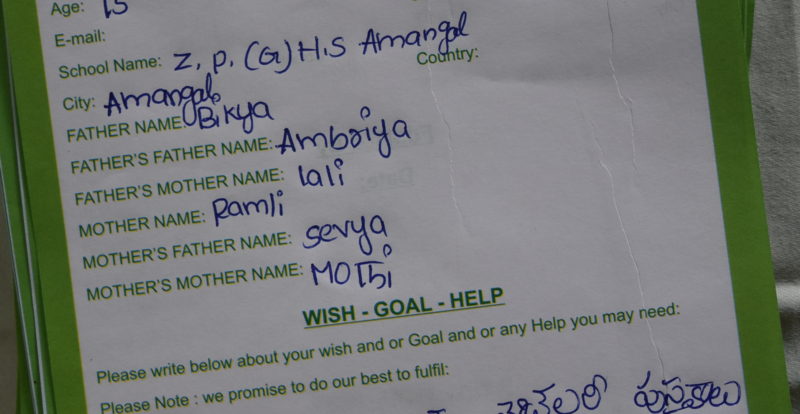 Age: 15
E-mail:
School Name: Z. P. (G) H.S Amangal
Country:
City: Amangal
FATHER NAME: Bikya
FATHER'S FATHER NAME: Ambriya
FATHER'S MOTHER NAME: lali
MOTHER NAME: Ramli
MOTHER'S FATHER NAME: sevya
MOTHER'S MOTHER NAME: MOThi
WISH - GOAL - HELP
Please write below about your wish and or Goal and or any Help you may need:
Please Note : we promise to do our best to fulfil: